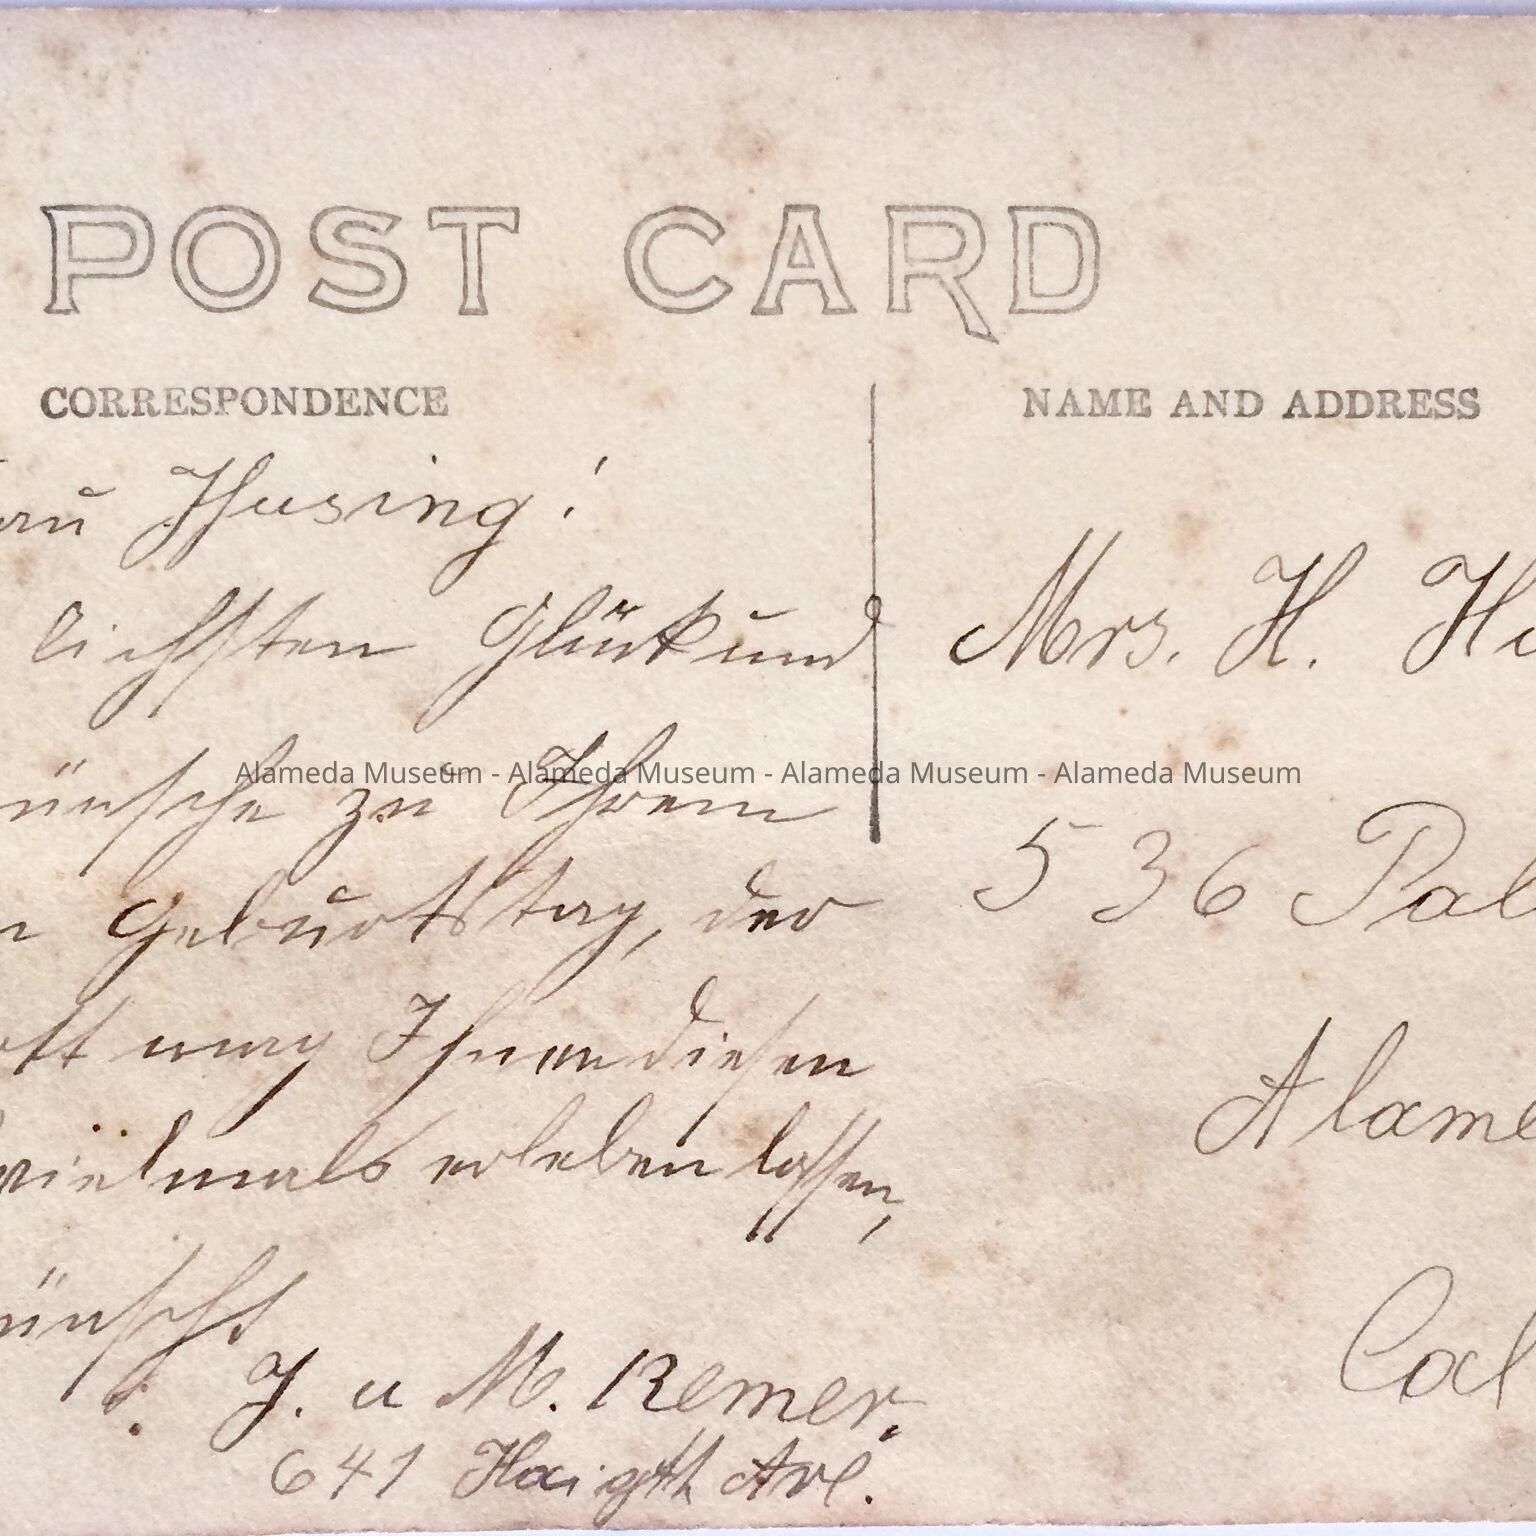 POST CARD
CORRESPONDENCE
NAME AND ADDRESS
au Husing!
lichsten Glück und
ünsche zu Ihrem
n Geburtstag, der
ott mag Ihnen diesen
vielmals erleben lassen,
ünscht
J. u M. Remer.
641 Haigth Ave.
Mrs. H. Hu
536 Pal
Alame
Cal
Alameda Museum - Alameda Museum - Alameda Museum - Alameda Museum